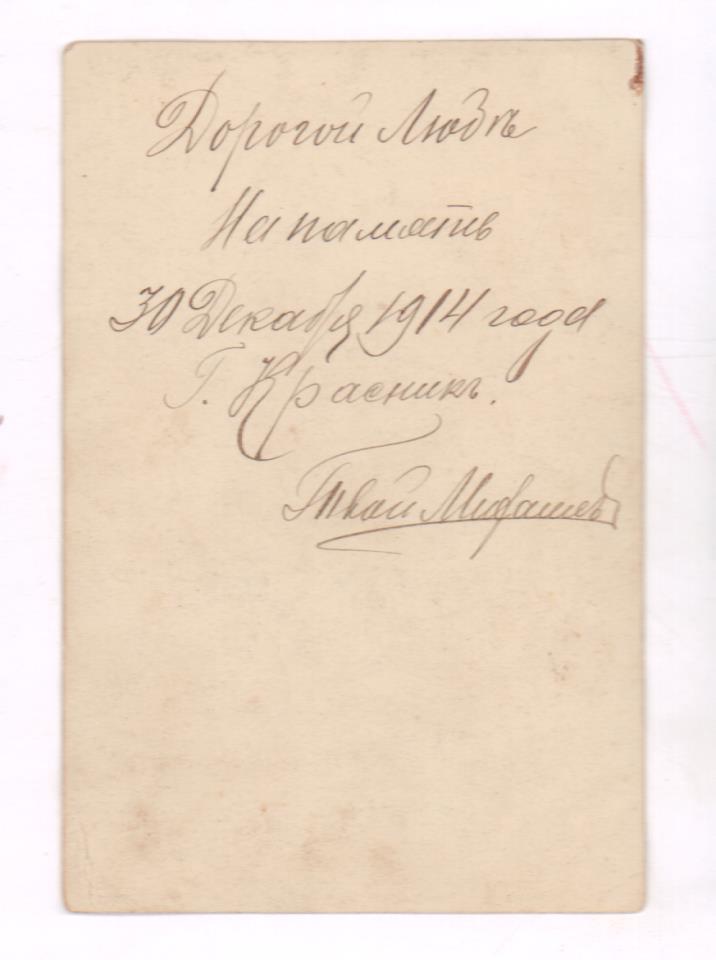 Дорогой Любѣ
На память
30 Декабря 1914 года
Г. Красникъ.
Твой